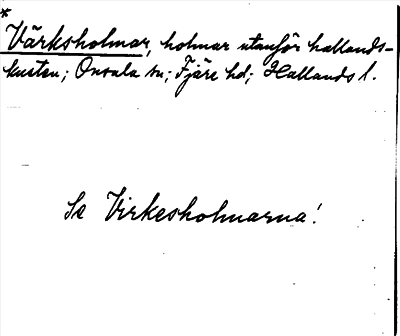 *
Värksholmar, holmar utanför hallands-
kusten; Onsala sn; Fjäre hd; Hallands l.
Se Virkesholmarna!